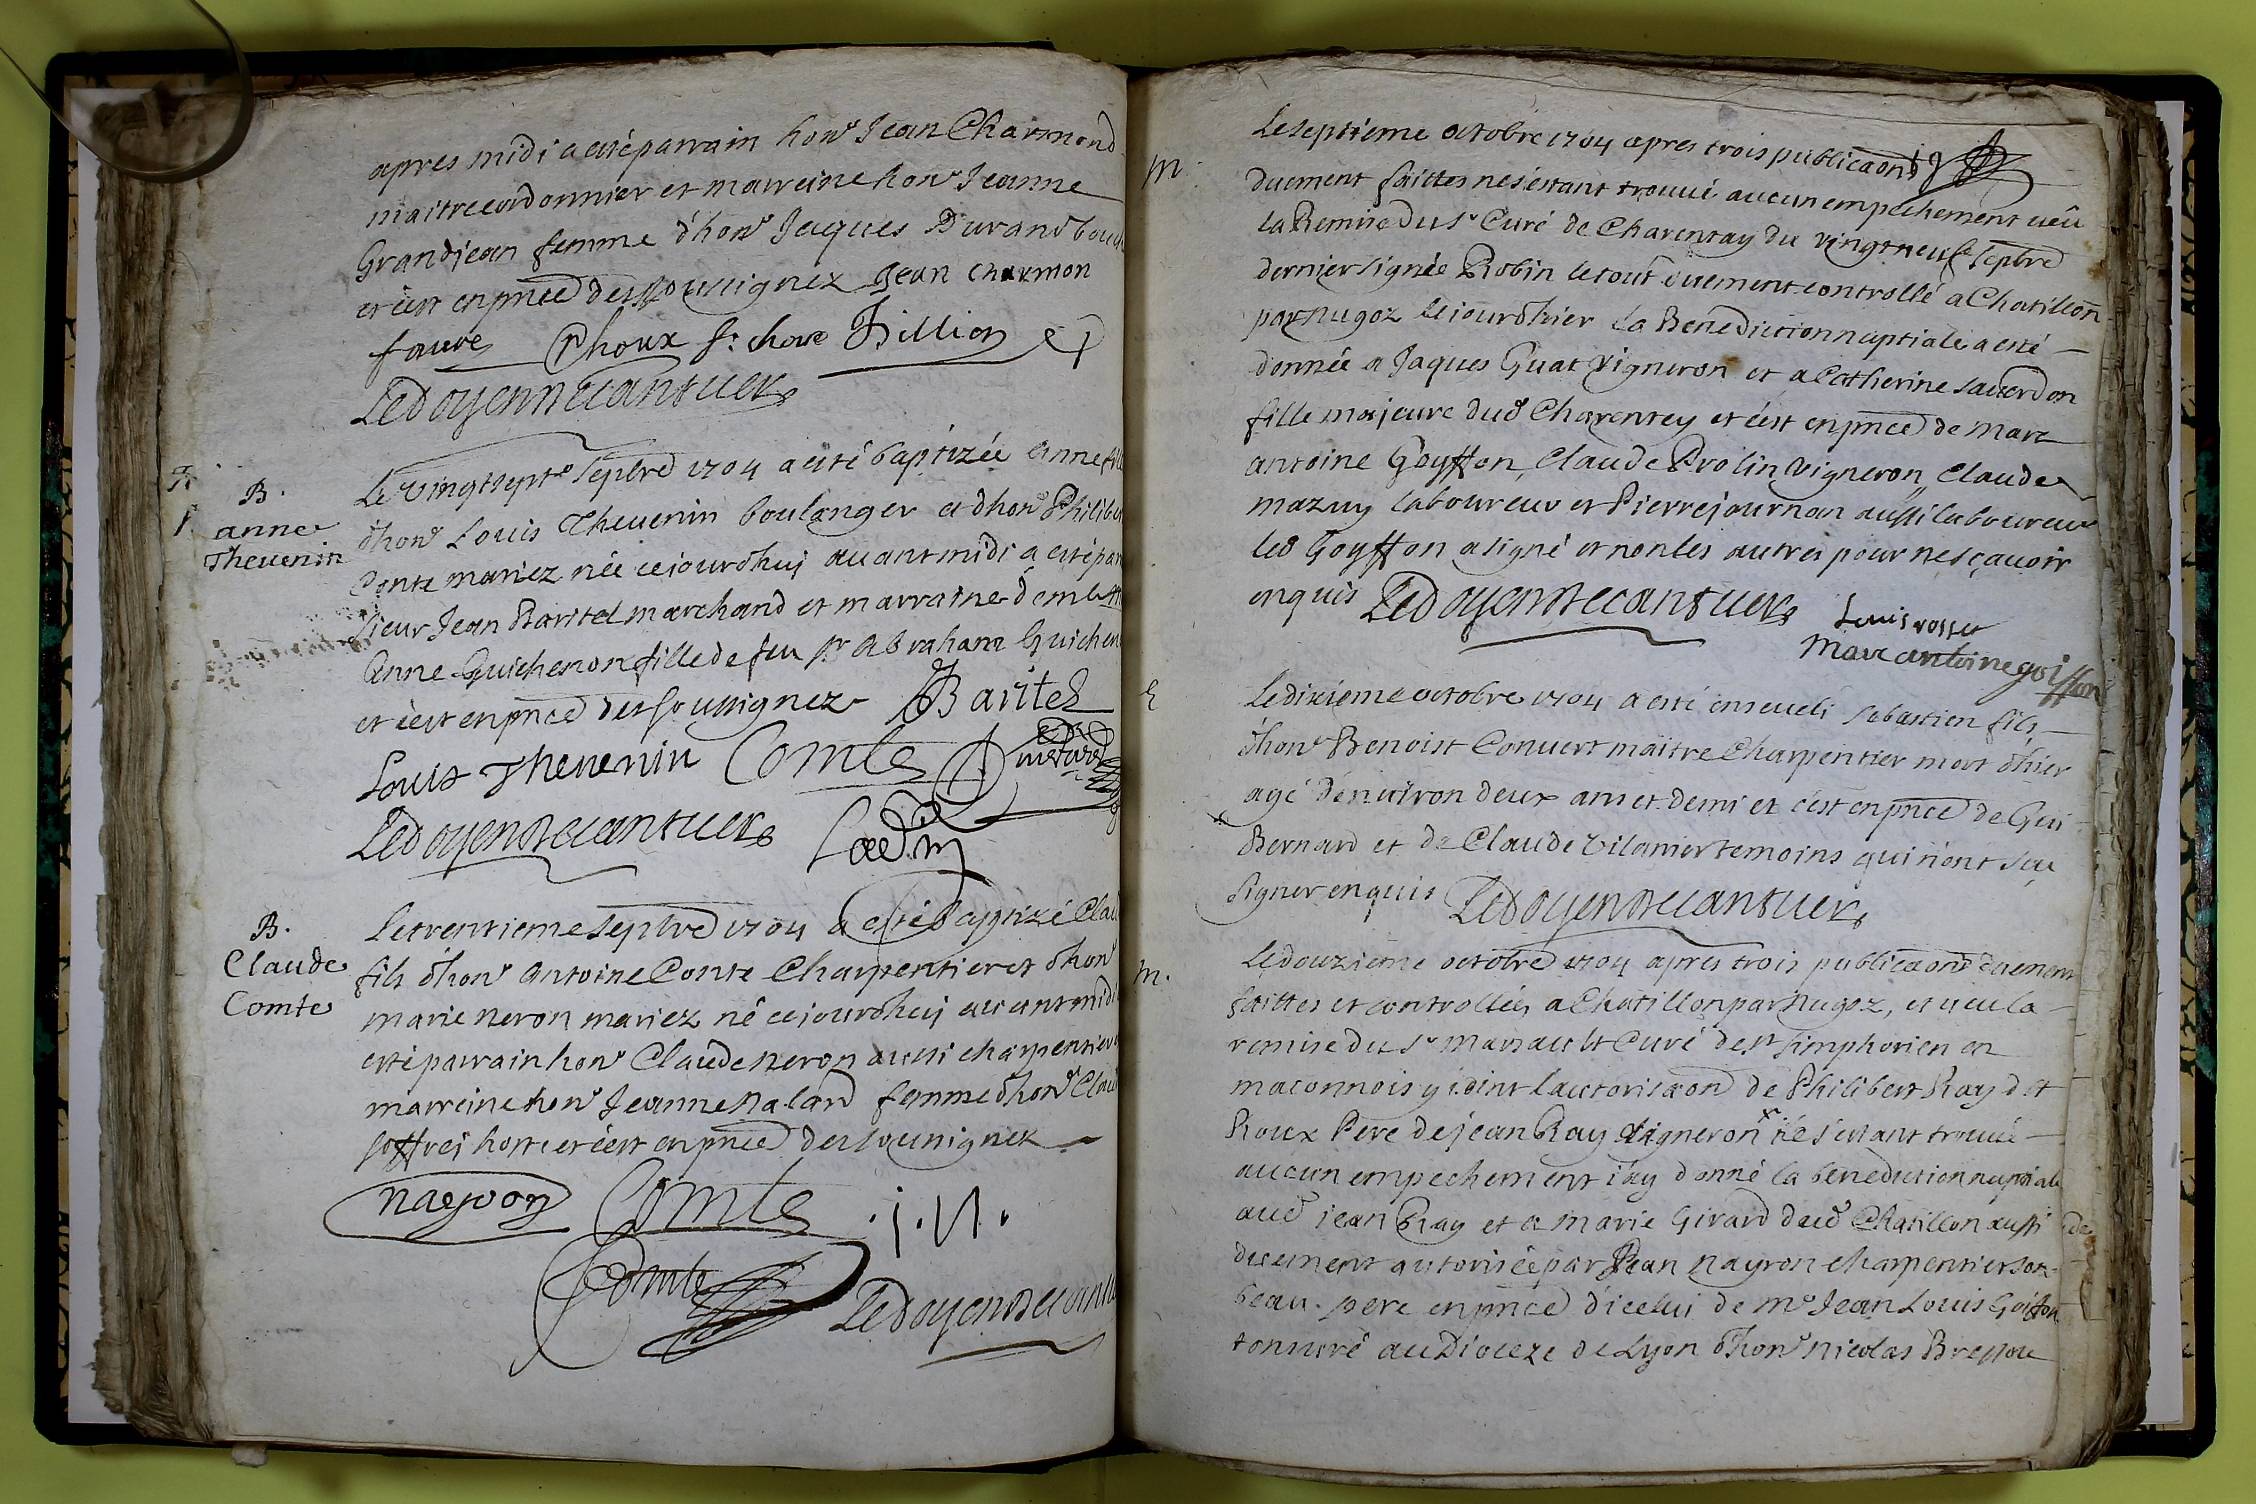 apres midi a esté parrain honᵉ Jean Charmond
maitre cordonnier et marreine honᵉ Jeanne
Grandjean femme d'honᵉ Jaques Durand
et c'est en pñce des soussignez Jean Charmon
faure Choux Fillion
Ledoyen Decantuer
B.
anne
Thevenin
Le vingtsept.e septbre 1704 a esté baptizée Anne
d'honᵉ Louis Thevenin boulanger et d'honᵉ
Conte mariez née cejourdhuj avant midi a esté
sieur Jean Baritel marchand et marraine demle
Anne Guichenon fille de feu sr Abraham
et c'est en pñce des soussignez Baritel
Louis Thevenin Comte
Ledoyen Decantuer
B.
Claude
Comte
Le trentieme septbre 1704 a esté baptizé
fils d'honᵉ Antoine Conte Charpentier et d'honᵉ
marie neron mariez né cejourdhuj avant midi
esté parrain honᵉ Claude neron aussi charpentier
marreine honᵉ Jeanne Nalard femme d'honᵉ
et c'est en pñce des sousignez
nayron Comte .j.N.
Comte
Ledoyen
m.
Le septieme octobre 1704 apres trois publicaons
duement faittes ne s'estant trouvé aucun empechement veu
la Remise du sr Curé de Charentay du vingtneufe septbre
dernier signée Robin le tout duement controllé a Chatillon
par nugoz le jour d'hier la Benediction nuptiale a esté
donnée a Jaques Guat vigneron et a Catherine
fille majeure dud Charentey et c'est en pñce de marc
antoine Goyffon, Claude Prolin vigneron, Claude
mazuy laboureur et Pierre journan aussi laboureur
led Goyffon a signé et non les autres pour ne sçavoir
enquis Ledoyen Decantuer
Louis rosset
Marc antoine goiffon
E
Le dixieme octobre 1704 a esté enseveli sebastien fils
d'honᵉ Benoist Convert maitre Charpentier mort d'hier
agé d'environ deux ans et demi et c'est en pñce de Gui
Bernard et de Claude Vilanier temoins qui n'ont sçu
signer enquis Ledoyen Decantuer
m.
Le douzieme octobre 1704 apres trois publicaons duement
faittes et controllées a Chatillon par nugoz, et veu la
remise du sr Curé de st simphorien en
maconnois y joint l'autorisaon de Philibert Ray dit
Roux Pere de jean Ray vigneron ne s'estant trouvé
aucun empechement j'ay donné la benediction nuptiale
aud jean Ray et a marie Girard dud Chatillon aussi
duement autorisée par Jean nayron charpentier son
beau-pere en pñce d'icelui de mᵉ Jean Louis Goiffon
tonsuré au Dioceze de Lyon d'honᵉ nicolas